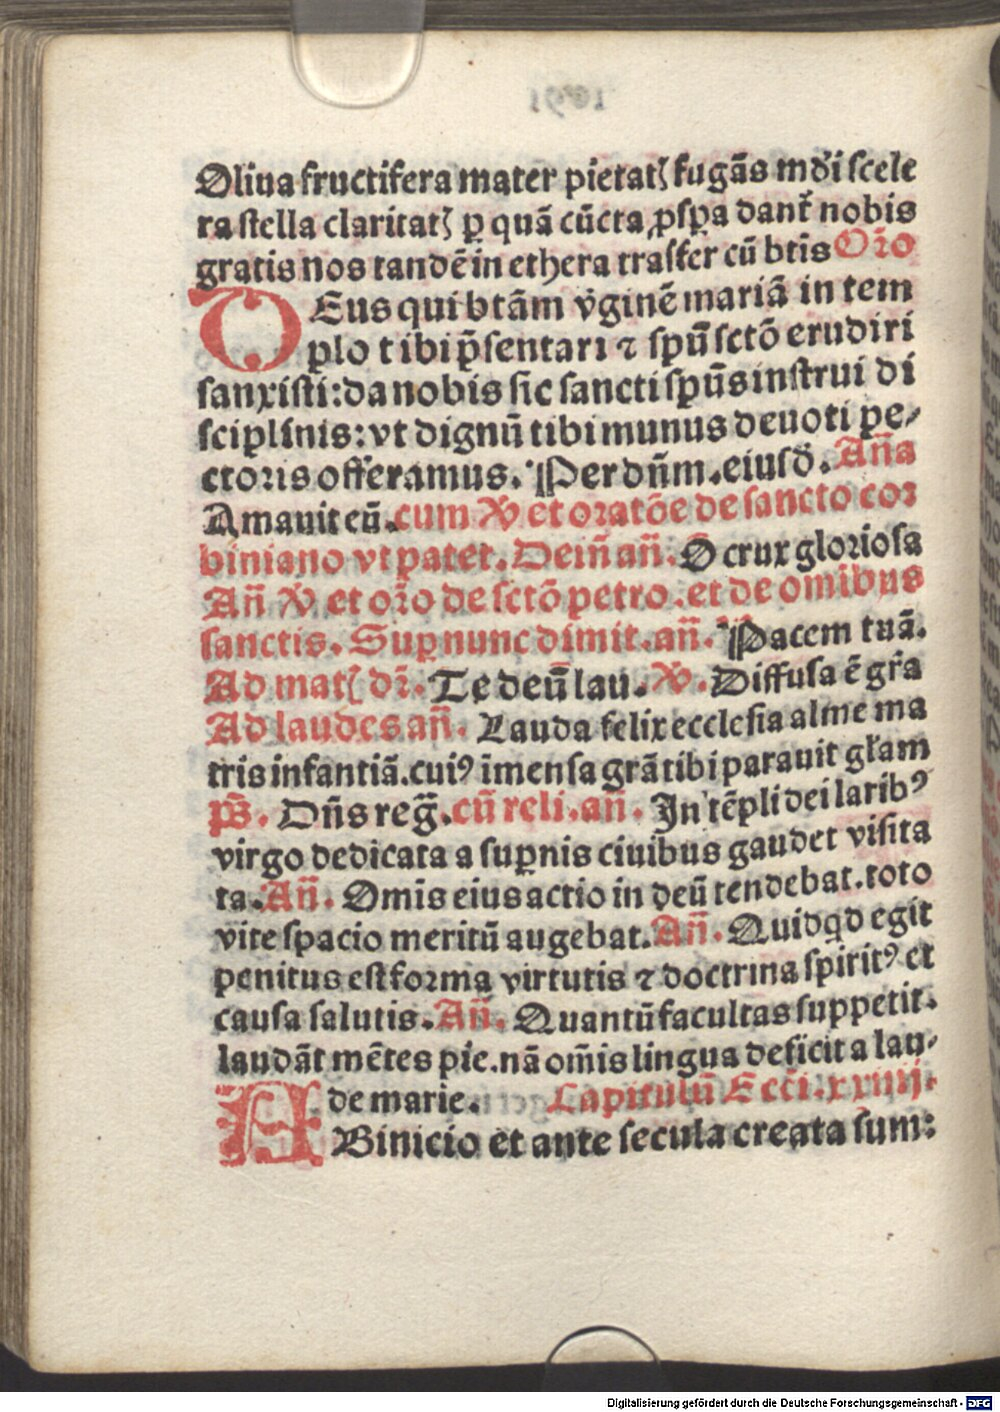 Oliua fructifera mater pietatꝭ fugãs mũdi scele
ra stella claritatꝭ ꝑ quã cũcta ꝓspa dant̃ nobis
gratis nos tandẽ in ethera trãsfer cũ btĩs Oro
DEus qui btãm v̓ginẽ mariã in tem
plo tibi p̃sentari ⁊ spũ sctõ erudiri
sanxisti: da nobis sic sancti spũs instrui di
sciplinis: vt dignũ tibi munus deuoti pe⸗
ctoris offeramus. Per dñm. eiusd̃. Aña
Amauit eũ. cum ℣ et oratõe de sancto cor
biniano vt patet. Deiñ añ. O crux gloriosa
Añ ℣ et oro de sctõ petro. et de omibus
sanctis. Suꝑ nunc dimit. añ. Pacem tuã.
Ad matꝭ dĩ. Te deũ lau. ℣. Diffusa ẽ gr̃a
Ad laudes añ. Lauda felix ecclesia alme ma
tris infantiã. cuiꝰ ĩmensa grã tibi parauit gl̃am
p̃s. Dñs reg̃. cũ reli. añ. In tẽpli dei laribꝰ
virgo dedicata a suꝑnis ciuibus gaudet visita
ta. Añ. Omĩs eius actio in deũ tendebat. toto
vite spacio meritũ augebat. Añ. Quidqd egit
penitus est forma virtutis ⁊ doctrina spiritꝰ et
causa salutis. Añ. Quantũ facultas suppetit.
laudãt mẽtes pie. nã om̃is lingua deficit a lau⸗
de marie. Capitulũ Ecci. xxiiij.
AB inicio et ante secula creata sum:
Digitalisierung gefördert durch die Deutsche Forschungsgemeinschaft - DFG